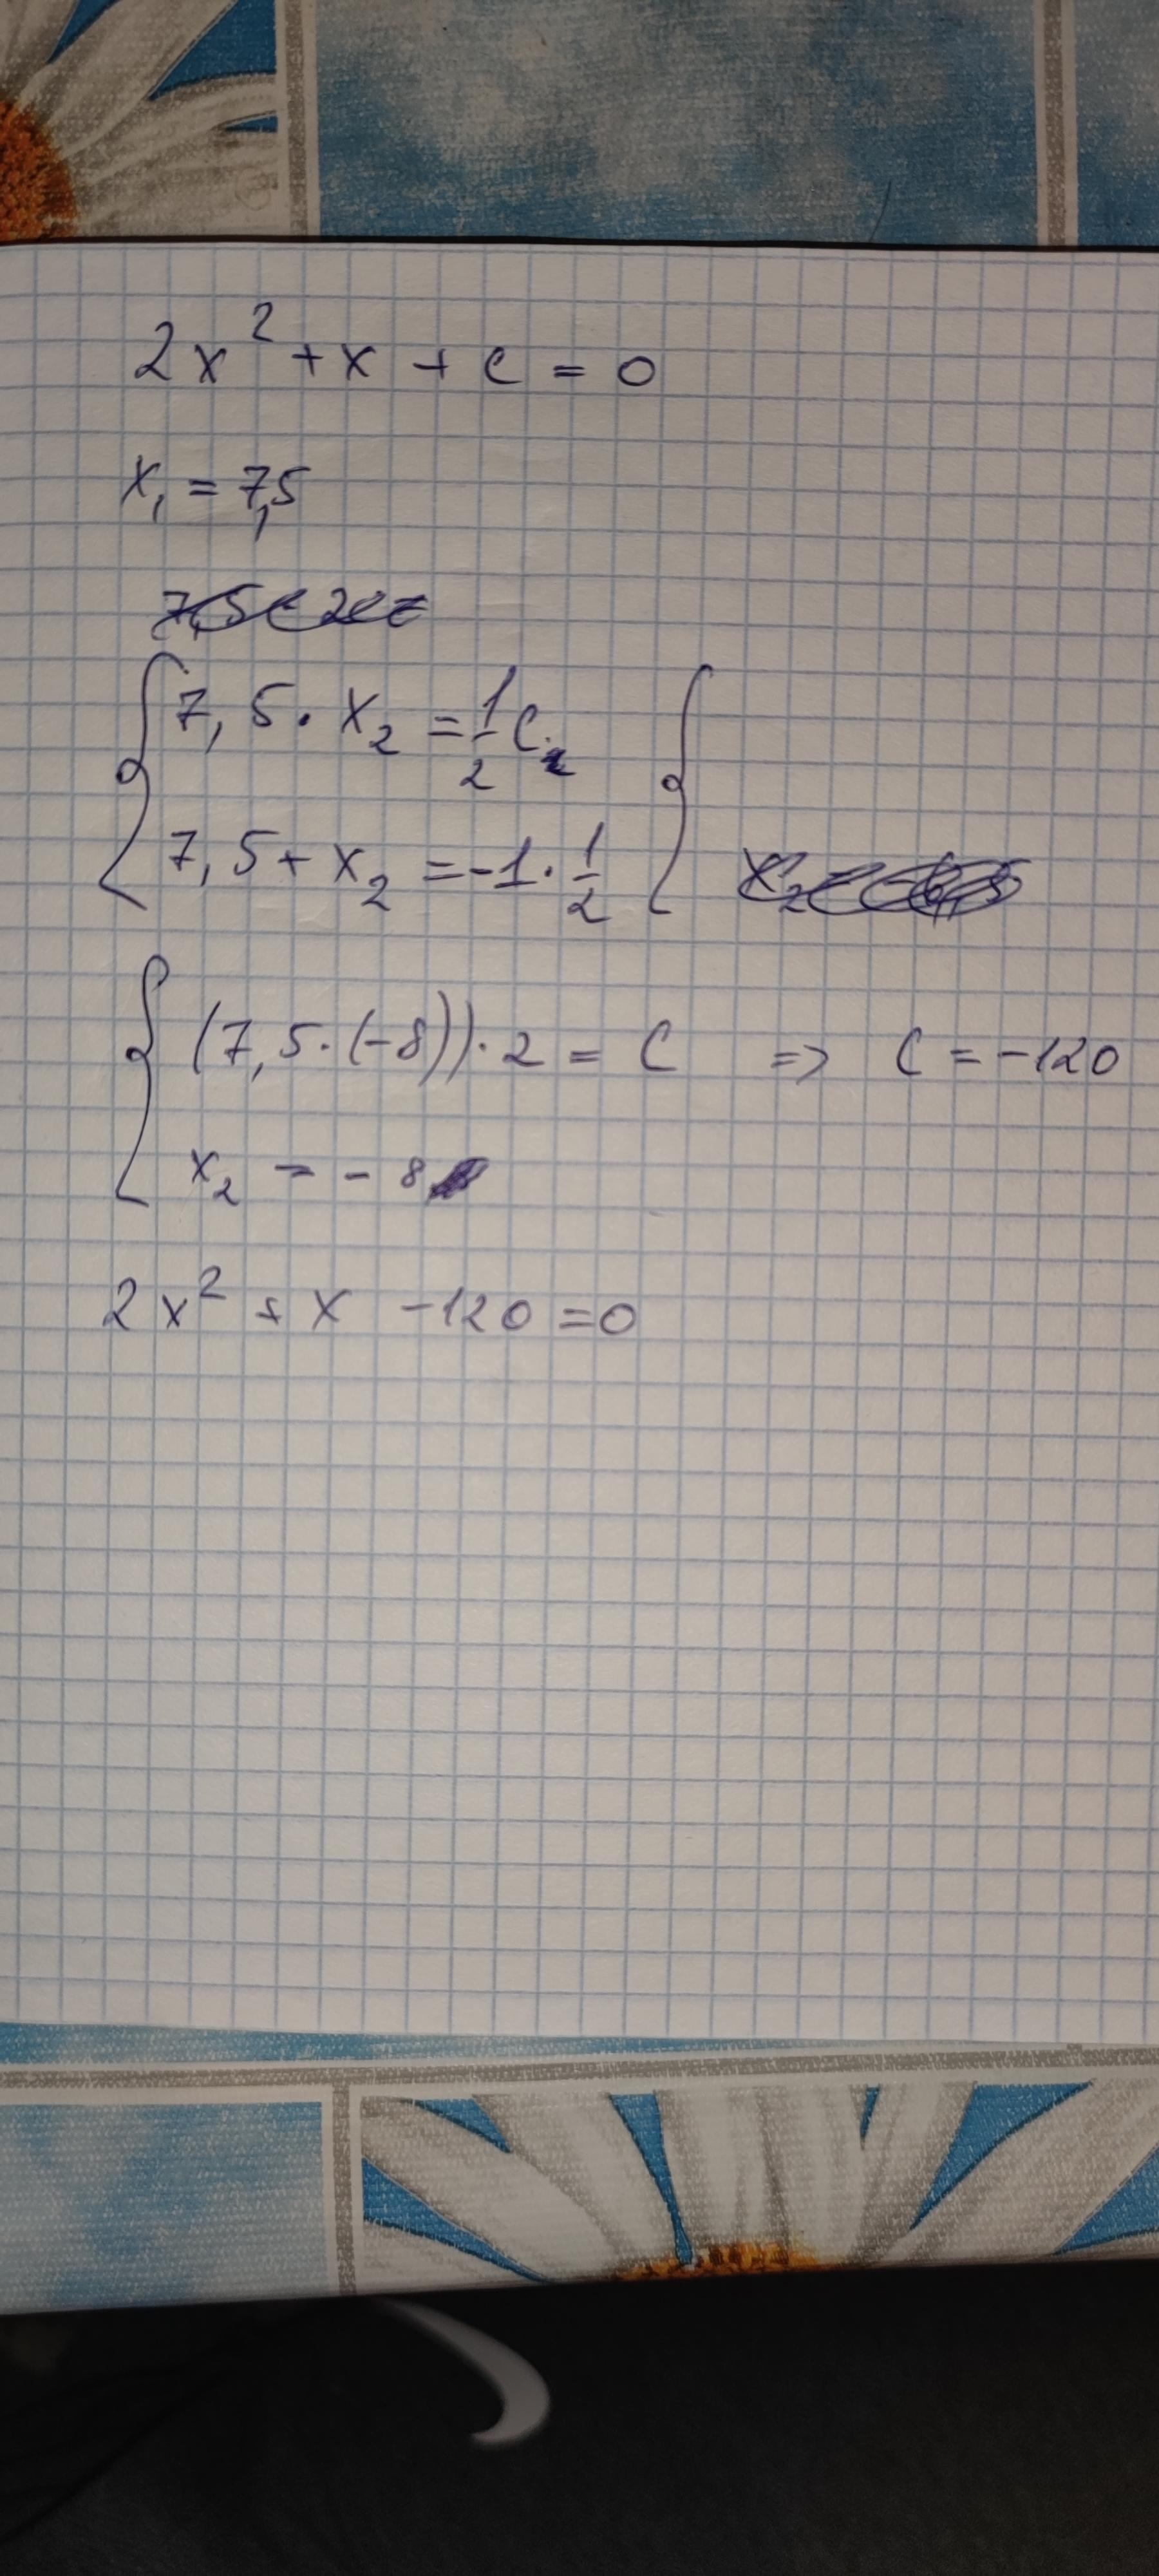 2x² + x + c = 0
x₁ = 7,5
{ 7,5 · x₂ = 1/2 c {
7,5 + x₂ = -1 · 1/2
{ (7,5 · (-8)) · 2 = C => C = -120
x₂ = - 8
2x² + x - 120 = 0